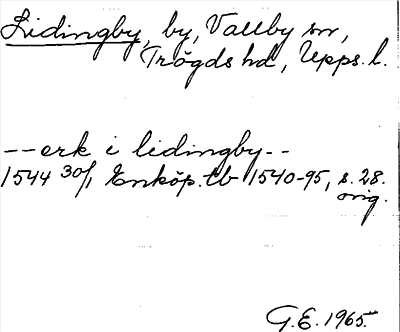 Lidingby, by, Vallby sn,
Trögds hd, Upps. l.
--erk i lidingby--
1544 30/1 Enköp. tb 1540-95, s. 28.
orig.
G.E. 1965.